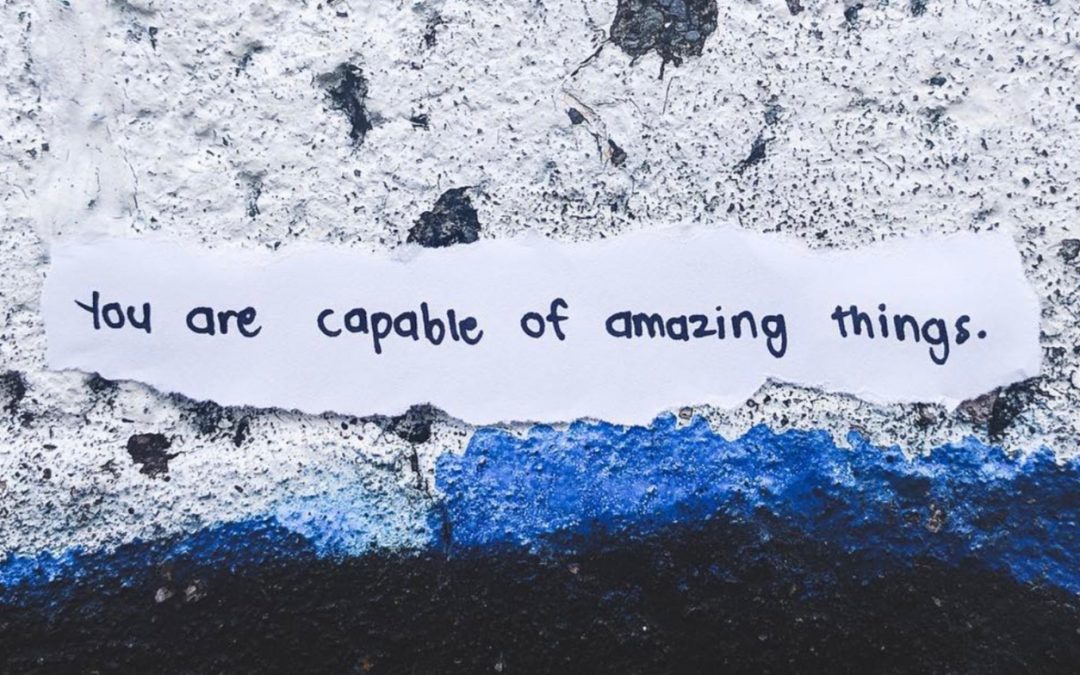 You are capable of amazing things.